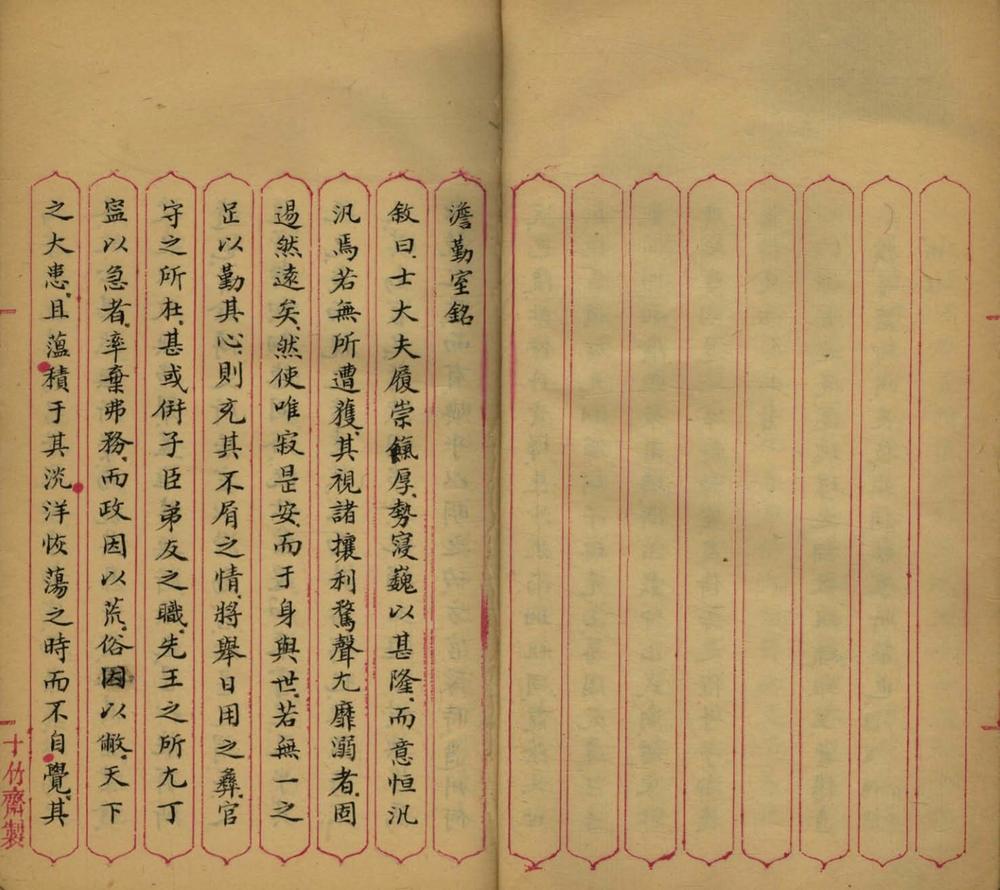 澹勤室銘
敘曰士大夫履崇饒厚勢寖巍以甚隆而意恒汎
汎焉若無所遭獲其視諸攘利騖聲尤靡溺者固
逿然遠矣然使唯寂是安而于身與世若無一之
足以勤其心則充其不屑之情將舉日用之彝官
守之所在甚或併子臣弟友之職先王之所尤丁
寍以急者率棄弗務而政因以荒俗因以敝天下
之大患且薀積于其洸洋恢蕩之時而不自覺其
十竹齋製